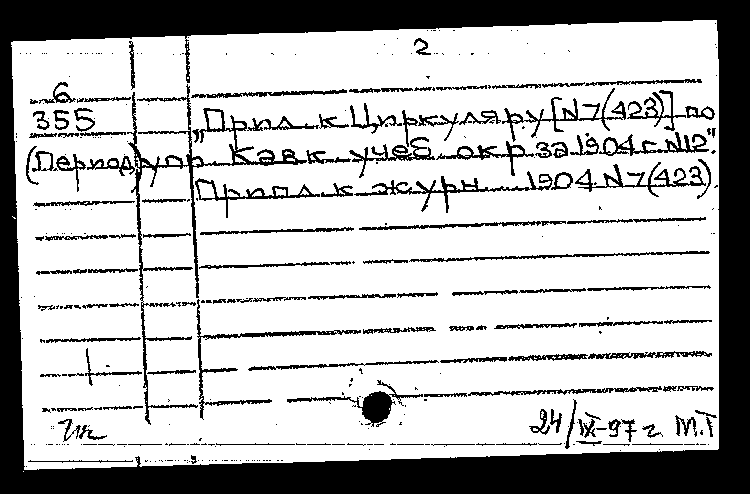 2
6
355 „Прил. к Циркуляру [N 7(423)] по
(Период) упр. Кавк. учеб. окр. за 1904 г. N12".
Прил. к журн. 1904 N 7(423).
24/IX-97 г. М.Т